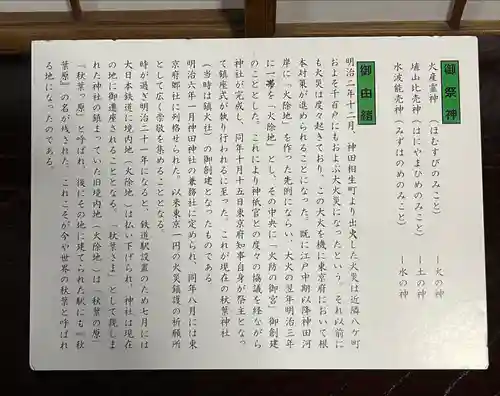 御祭神
火産霊神（ほむすびのみこと）　―火の神
埴山比売神（はにやまひめのみこと）　―土の神
水波能売神（みずはのめのみこと）　―水の神
御由緒
明治二年十二月、神田相生町より出火した火災は近隣八ケ町
およそ千百戸にもおよぶ大火災になったという。それ以前に
も火災は度々起きており、この大火を機に東京府において根
本対策が進められることになった。既に江戸中期以降神田河
岸に「火除地」を作った先例にならい、大火の翌年明治三年
に一帯を「火除地」とし、その中央に「火防の御宮」御創建
のこととした。これにより神祇官との度々の協議を経ながら
神社が完成し、同年十月十五日東京府知事自らが祭主となっ
て鎮座式が執り行われるに至った。これが現在の秋葉神社
（当時は鎮火社）の御創建となったものである。
明治六年一月神田神社の兼務社に定められ、同年八月には東
京府郷社に列格せられた。以来東京一円の火災鎮護の祈願所
として広く崇敬を集めることとなる。
時が過ぎ明治二十一年になると、鉄道駅設置のため七月には
大日本鉄道に境内地（火除地）は払い下げられ、神社は現在
の地に御遷座されることとなる。「秋葉さま」として親しま
れた神社の鎮まっていた旧境内地（火除地）は「秋葉の原」
「秋葉っ原」と呼ばれ、後にその地に建てられた駅にも「秋
葉原」の名が残された。これこそが今や世界の秋葉と呼ばれ
る地になったのである。